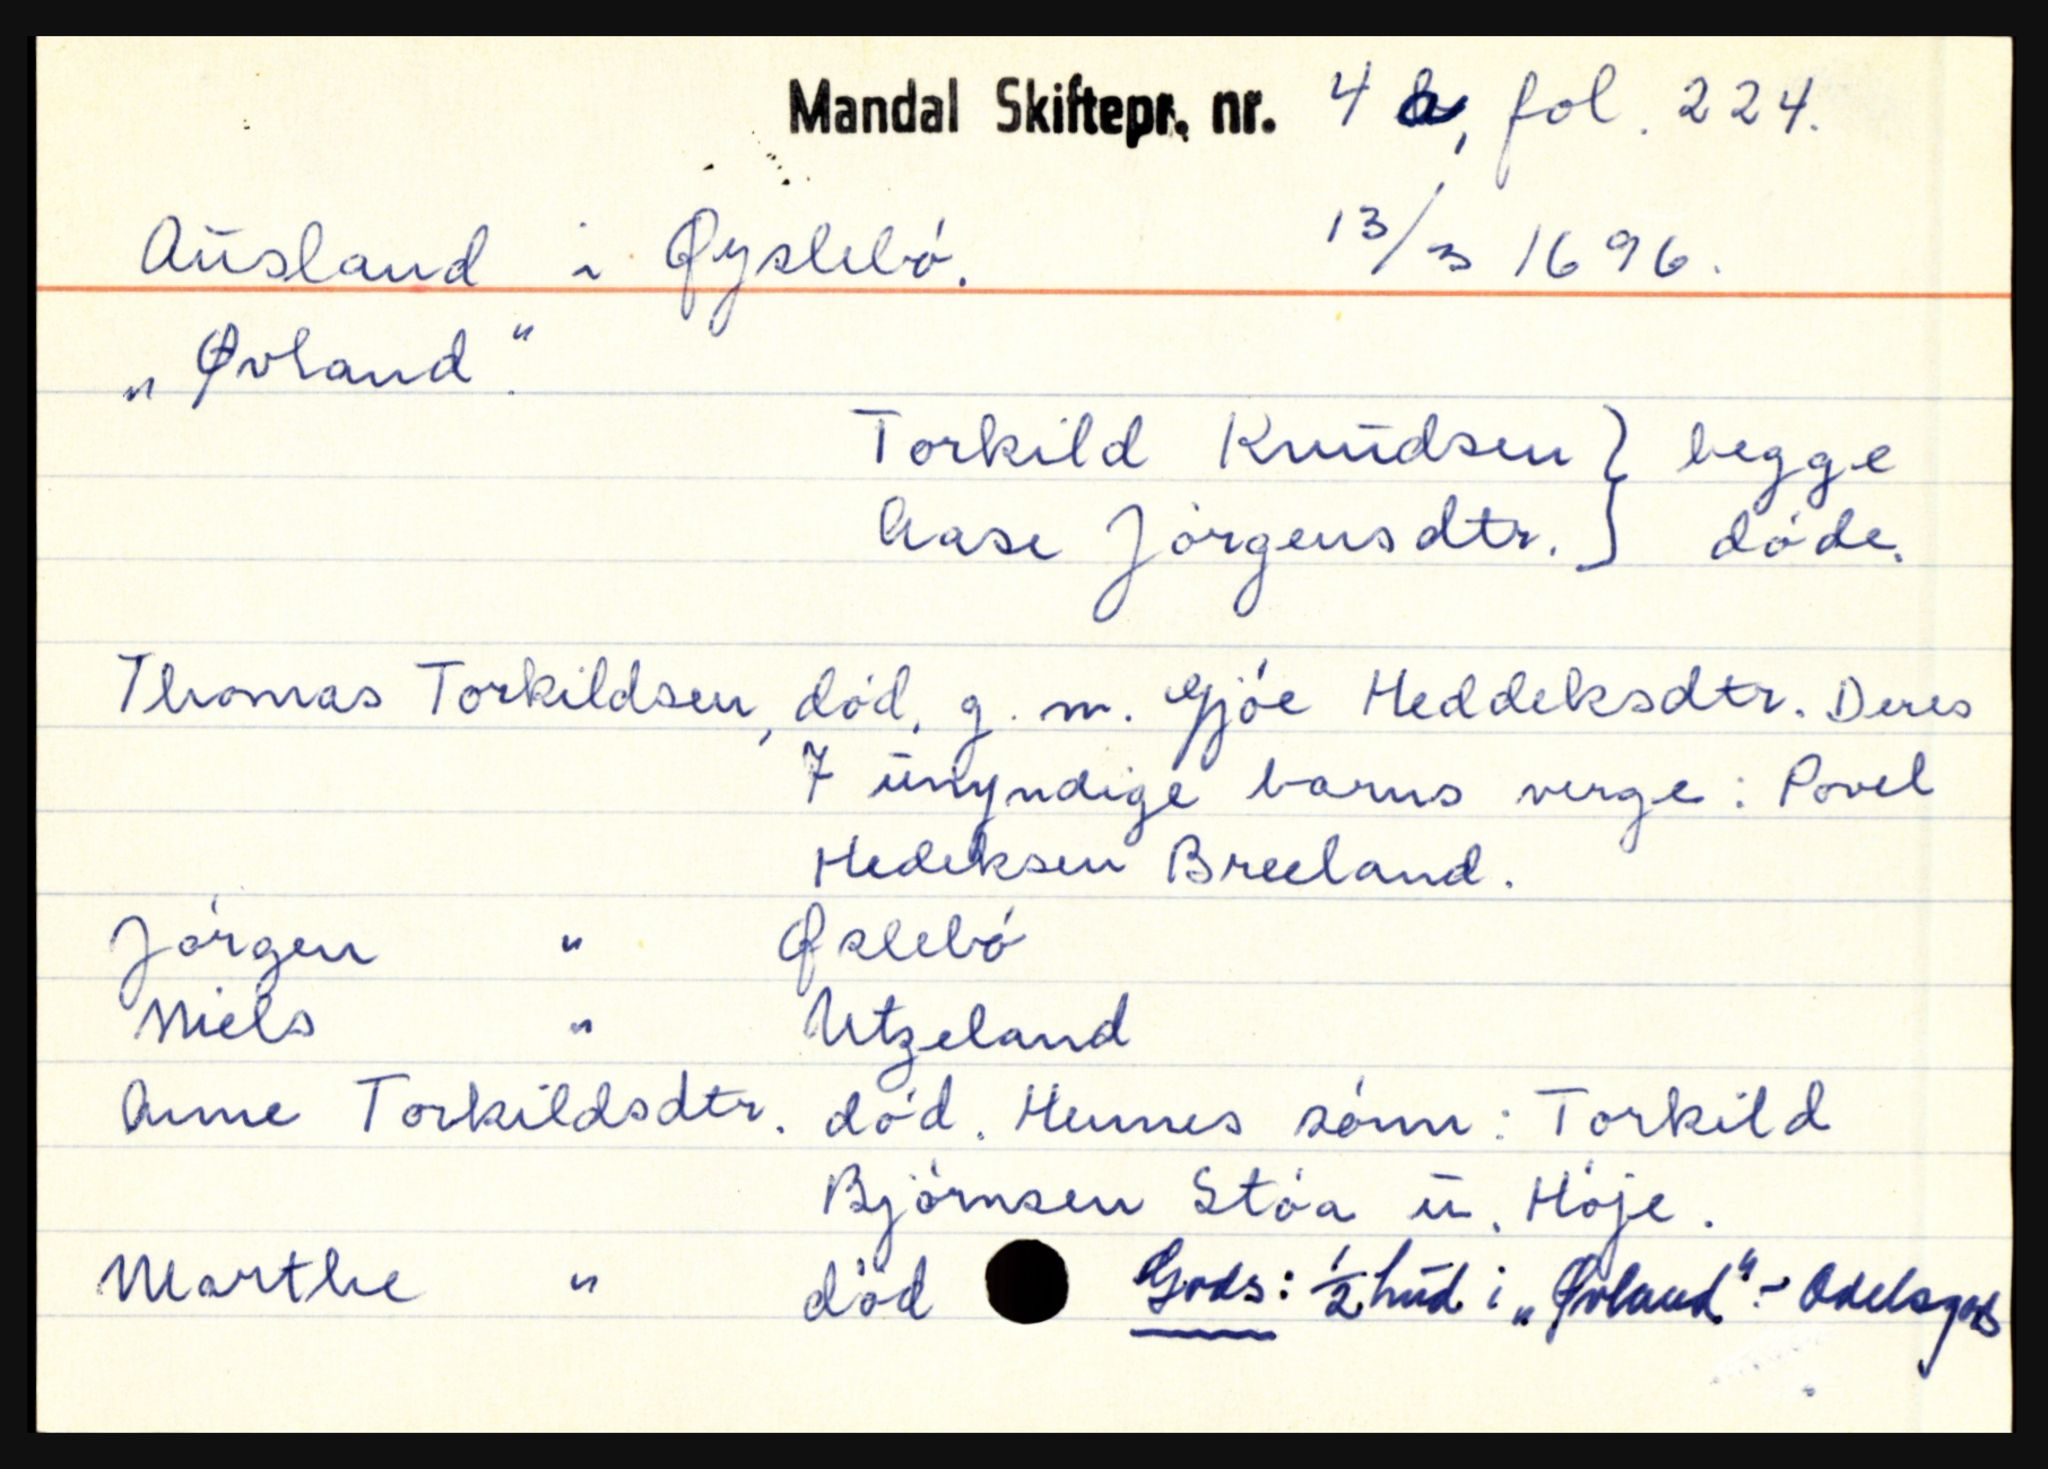 Mandal Skiftepr. nr. 4 a, fol. 224.
Ausland i Øyslebø. 13/3 1696.
„Øvland".
Torkild Knudsen } begge
Aase Jørgensdtr. } døde.
Thomas Torkildsen, død, g. m. Gjøe Heddeksdtr. Deres
7 unyndige barns verge: Povel
Hedeksen Breeland.
Jørgen " Øslebø
Niels " Utzeland
Anne Torkildsdtr. død. Hennes sønn: Torkild
Bjørnsen Støa u. Høje.
Marthe " død Gods: 1/2 hud i „Øvland". - Odelsgods